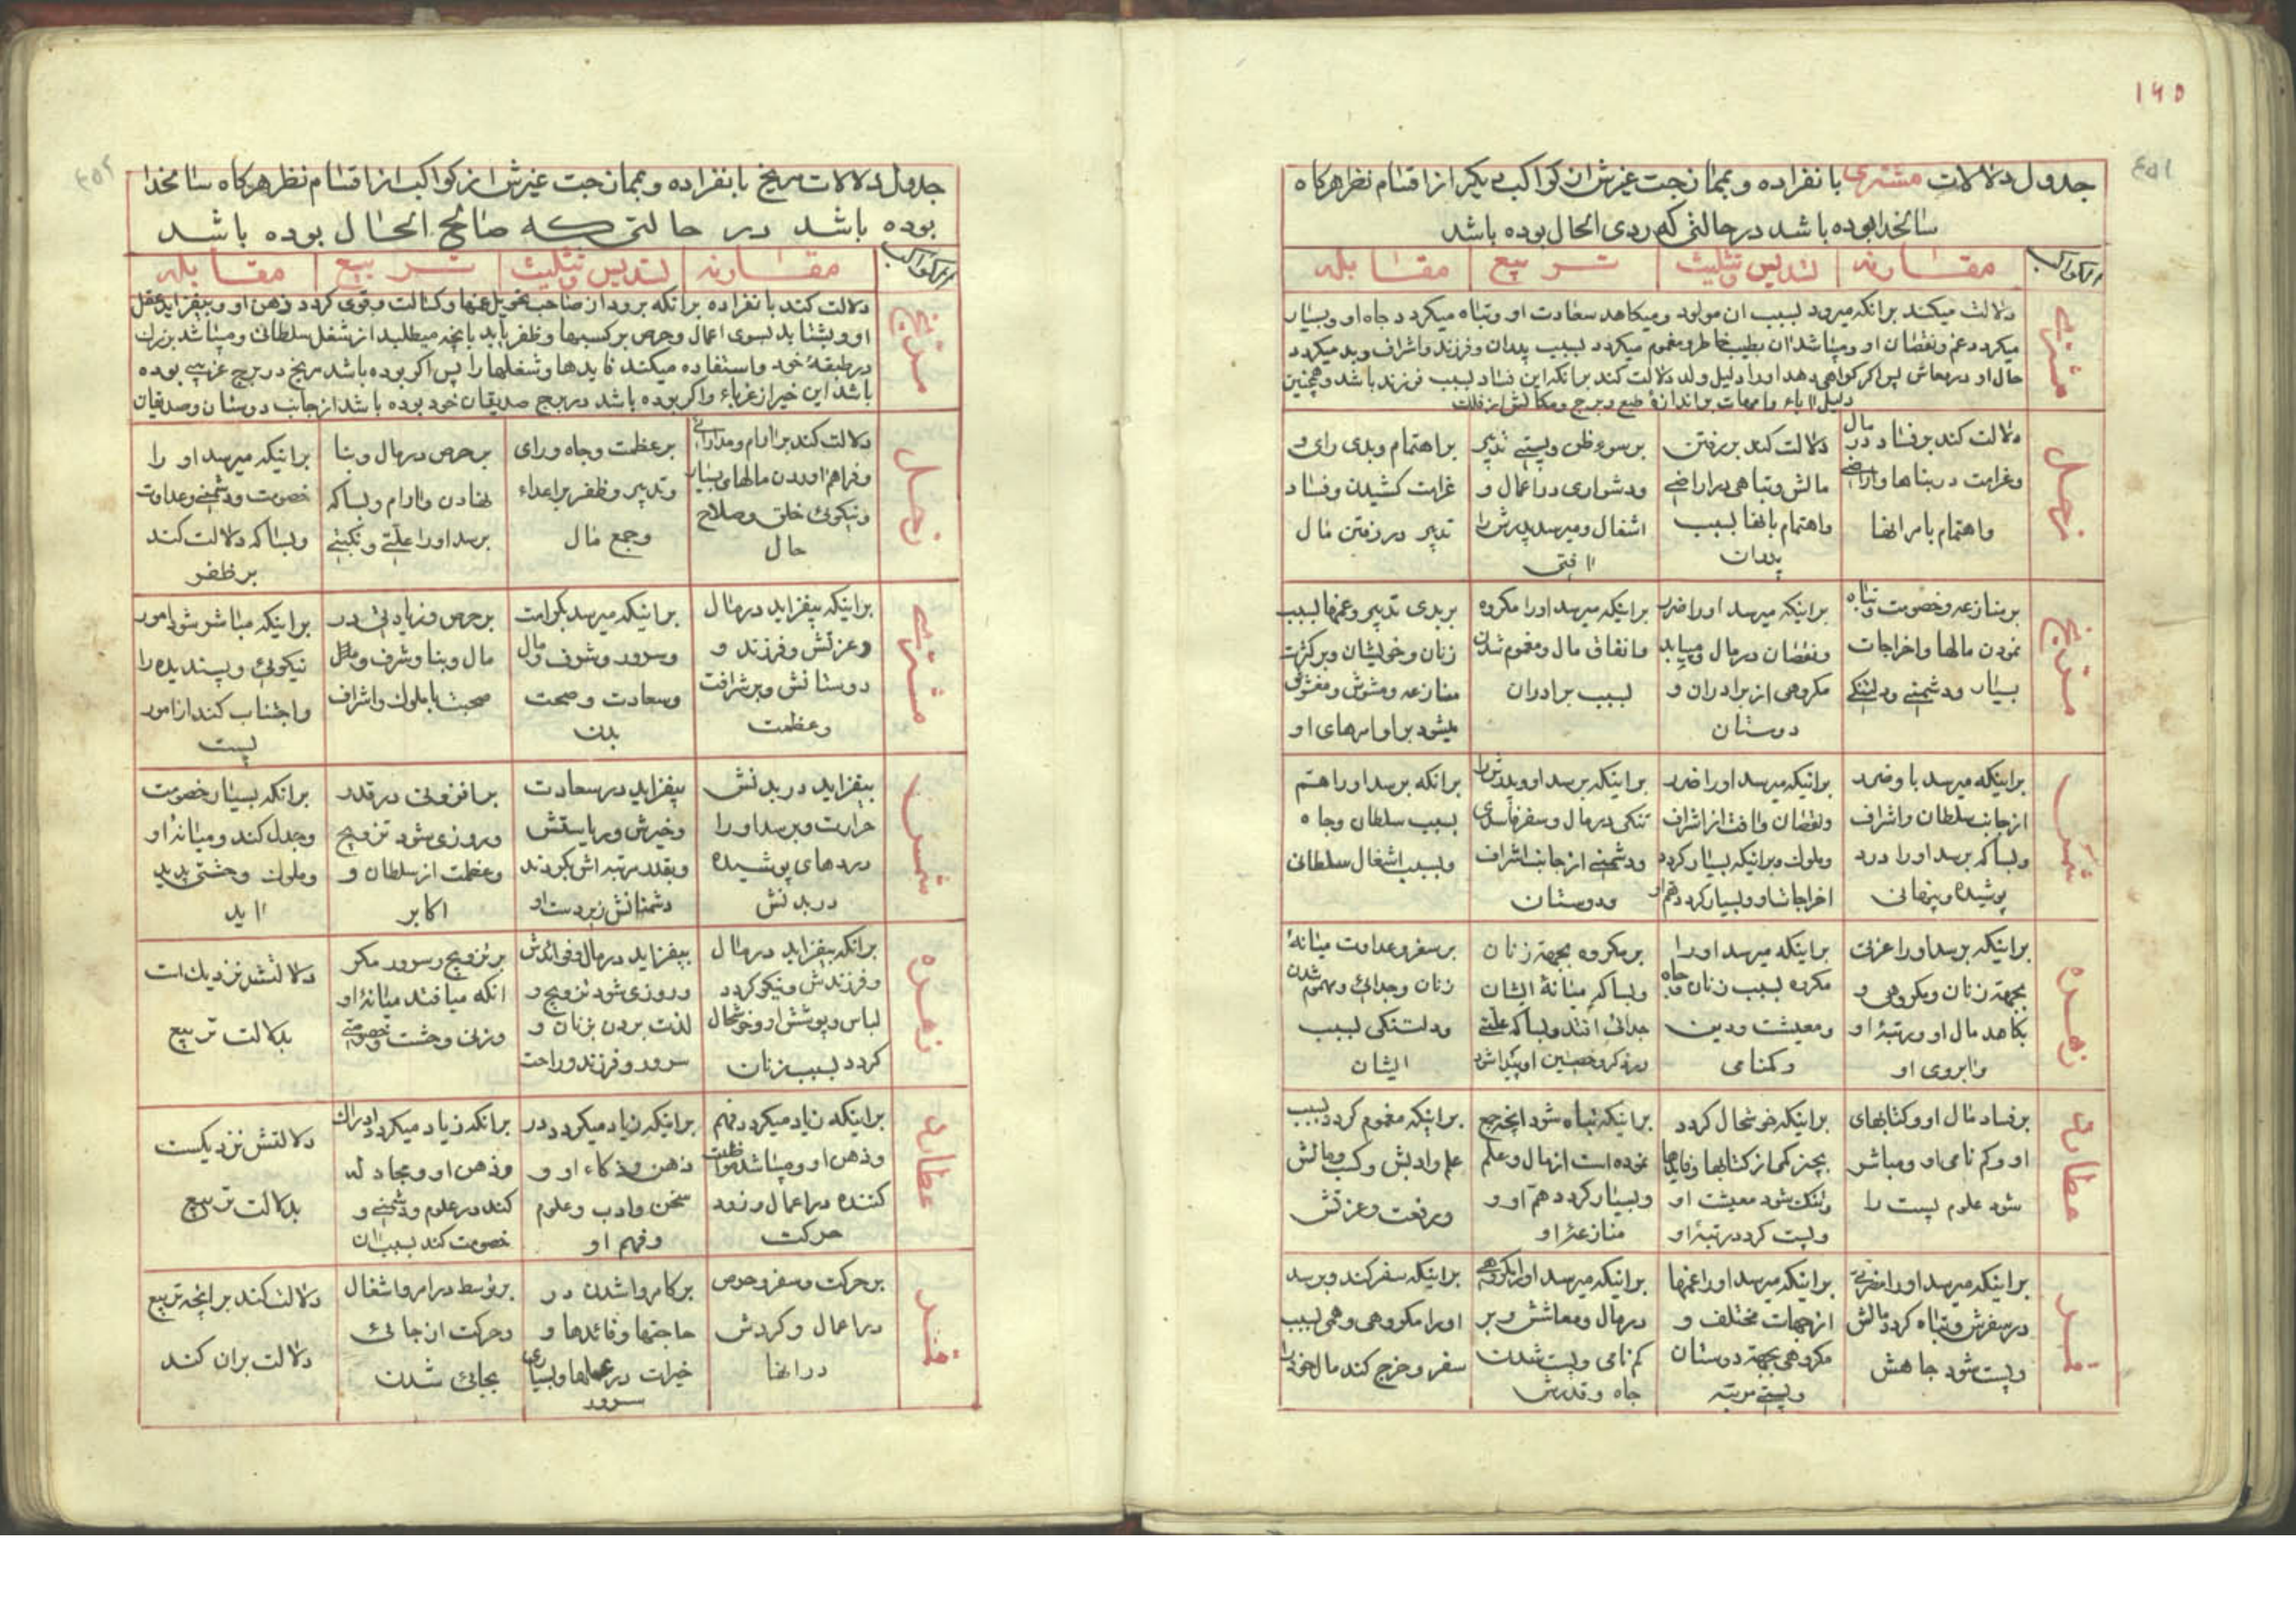 ۱۴۵
۴۵۱
جدول دلالات مشتری بانفراده و بممازجت غیرش از کواکب دیگر از اقسام نظر هرگاه
سالخدا بوده باشد در حالتی که ردی الحال بوده باشد
الکواکب
مقارنه
تسدیس و تثلیث
تربیع
مقابله
مشتری
دلالت میکند برانکه میرود بسبب ان مولود و میکاهد سعادت او و تباه میکردد جاه او و بسیار
میکردد غم و نقصان او و میباشد ان بطیب خاطر و مغموم میکردد بسبب پدران و فرزند و اشراف و بد میکردد
حال او در معاش پس اکر کواهی دهد او را دلیل ولد دلالت کند برانکه این فساد بسبب فرزند باشد و همچنین
دلیل اباء و امهات براندازهٔ طبع و برج و مکانش از فلک
زحل
دلالت کند بر فساد در مال
و غرامت در بناها و اراضی
و اهتمام بامر انها
دلالت کند بر رفتن
مالش و تباهی در اراضی
و اهتمام بانها بسبب
پدران
بر سوء ظن و پستی تدبیر
و دشواری در اعمال و
اشغال و میرسد پدرش را
افتی
بر اهتمام و بدی رای و
غرامت کشیدن و فساد
تدبیر در رفتن مال
مریخ
بر منازعه و خصومت و تباه
نمودن مالها و اخراجات
بسیار و دشمنی و دلتنکی
براینکه میرسد او را ضرر
و نقصان در مال و مییابد
مکروهی از برادران و
دوستان
براینکه میرسد او را مکروه
و انفاق مال و مغموم شدن
بسبب برادران
بر بدی تدبیر و غمها بسبب
زنان و خویشان و بر کثرت
منازعه و مشوش و مغشوش
میشود بر او امرهای او
شمس
براینکه میرسد باو ضرر
از جانب سلطان و اشراف
و بسا که برسد او را درد
پوشیده و پنهانی
براینکه میرسد او را ضرر
و نقصان و افت از اشراف
و ملوک و براینکه بسیار کردد
اخراجات او و بسیار کردد هم او
براینکه برسد او و پدرش را
تنکی در مال و سفر فاسدی
و دشمنی از جانب اشراف
و دوستان
برانکه برسد او را هم
بسبب سلطان و جاه
و بسبب اشغال سلطانی
زهره
براینکه برسد او را عزلی
بجهت زنان و مکروهی و
بکاهد مال او و رتبهٔ او
و ابروی او
براینکه میرسد او را
مکروه بسبب زنان و جاه
و معیشت و دین
و کمنامی
بر مکروه بجهت زنان
و بسا که میانهٔ ایشان
جدائی افتد و بسا که علتی
بر سفر و عداوت میانهٔ
زنان و جدائی و مهموم شدن
و دلتنکی بسبب
ایشان
عطارد
بر فساد مال او و کتابهای
او و کم نامی او و مباشر
شود علوم پست را
براینکه خوشحال کردد
بچیز کمی از کتابها و فایدها
و تنک شود معیشت او
و پست کردد رتبهٔ او
براینکه تباه شود انچه جمع
نموده است از مال و علم
و بسیار کردد هم او و
منازعهٔ او
براینکه مغموم کردد بسبب
علم و ادبش و کسب و مالش
و رفعت و عزتش
قمر
براینکه میرسد او را مضرتی
در سفرش و تباه کردد مالش
و پست شود جاهش
براینکه میرسد او را غمها
از جهات مختلف و
مکروهی بجهت دوستان
و پستی مرتبه
براینکه میرسد او را مکروهی
در مال و معاشش و بر
کم نامی و پست شدن
جاه و قدرش
براینکه سفر کند و برسد
او را مکروهی و همی بسبب
سفر و خرج کند مال خود را
۴۵۲
جدول دلالات مریخ بانفراده و بممازجت غیرش از کواکب از اقسام نظر هرکاه سالخدا
بوده باشد در حالتی که صالح الحال بوده باشد
الکواکب
مقارنه
تسدیس و تثلیث
تربیع
مقابله
مریخ
دلالت کند بانفراده برانکه برود از صاحب تحویل غمها و کسالت و قوی کردد ذهن او و بیفزاید عقل
او و بشتابد بسوی اعمال و حرص بر کسبها و ظفر یابد بانچه میطلبد از شغل سلطانی و میباشد بزرک
در طبقهٔ خود و استفاده میکند فایدها و شغلها را پس اکر بوده باشد مریخ در برج غریبی بوده
باشد این خیر از غرباء و اکر بوده باشد در برج صدیقان خود بوده باشد از جانب دوستان و صدیقان
زحل
دلالت کند بر ارام و مدارائی
و فراهم اوردن مالهای بسیار
و نیکوئی خلق و صلاح
حال
بر عظمت و جاه و رای
و تدبیر و ظفر بر اعداء
و جمع مال
بر حرص در مال و بنا
نهادن و ارام و بسا که
برسد او را علتی و نکبتی
براینکه میرسد او را
خصومت و دشمنی و عداوت
و بسا که دلالت کند
بر ظفر
مشتری
براینکه بیفزاید در مال
و عزتش و فرزند و
دوستانش و بر شرافت
و عظمت
براینکه میرسد بکرامت
و سرور و شرف و مال
و سعادت و صحت
بدن
بر حرص و زیادتی در
مال و بنا و شرف و
صحبت با ملوک و اشراف
براینکه مباشر شود امور
نیکوئی و پسندیده را
و اجتناب کند از امور
پست
شمس
بیفزاید در بدنش
حرارت و برسد او را
دردهای پوشیده
در بدنش
بیفزاید در سعادت
و خیرش و ریاستش
و بقدر مرتبه اش بکروند
دشمنانش زیردست او
بر افزونی در قدر
و روزی شود تزویج
و عظمت از سلطان و
اکابر
برانکه بسیار خصومت
و جدل کند و میانهٔ او
و ملوک وحشتی پدید
اید
زهره
برانکه بیفزاید در مال
و فرزندش و نیکو کردد
لباس و پوشش او و خوشحال
کردد بسبب زنان
بیفزاید در مال و فوائدش
و روزی شود تزویج و
لذت بردن بزنان و
سرور و فرزند و راحت
بر تزویج و سرور مکر
انکه میافتد میانهٔ او
و زنی وحشت و خصومتی
دلالتش نزدیک است
بدلالت تربیع
عطارد
براینکه زیاد میکردد فهم
و ذهن او و میباشد مواظبت
کننده در اعمال و زود
حرکت
براینکه زیاد میکردد در
ذهن و ذکاء او و
سخن و ادب و علوم
و فهم او
برانکه زیاد میکردد ادراک
و ذهن او و مجادله
کند در علوم و دشمنی و
خصومت کند بسبب ان
دلالتش نزدیکست
بدلالت تربیع
قمر
بر حرکت و سفر و حرص
در اعمال و کردش
در انها
بر کامروا شدن در
حاجتها و فائدها و
خیرات در عملها و بسیاری
سرور
بر توسط در امر و اشغال
و حرکت از جائی
بجائی شدن
دلالت کند بر انچه تربیع
دلالت بران کند